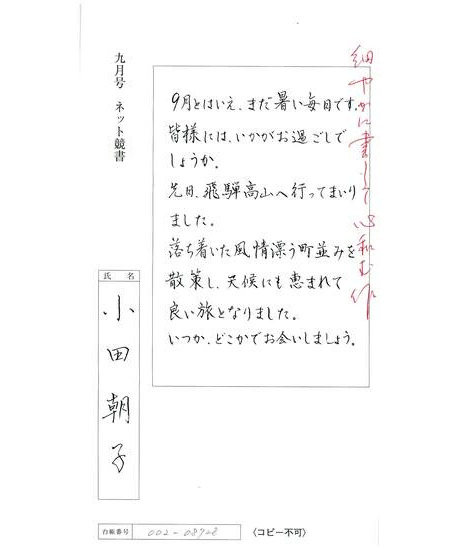 細やかに書して心和む作
九月号 ネット競書
9月とはいえ、まだ暑い毎日です。
皆様には、いかがお過ごしで
しょうか。
先日、飛騨高山へ行ってまいり
ました。
落ち着いた風情漂う町並みを
散策し、天候にも恵まれて
良い旅となりました。
いつか、どこかでお会いしましょう。
氏名
小田朝子
台帳番号 002-08928
〈コピー不可〉